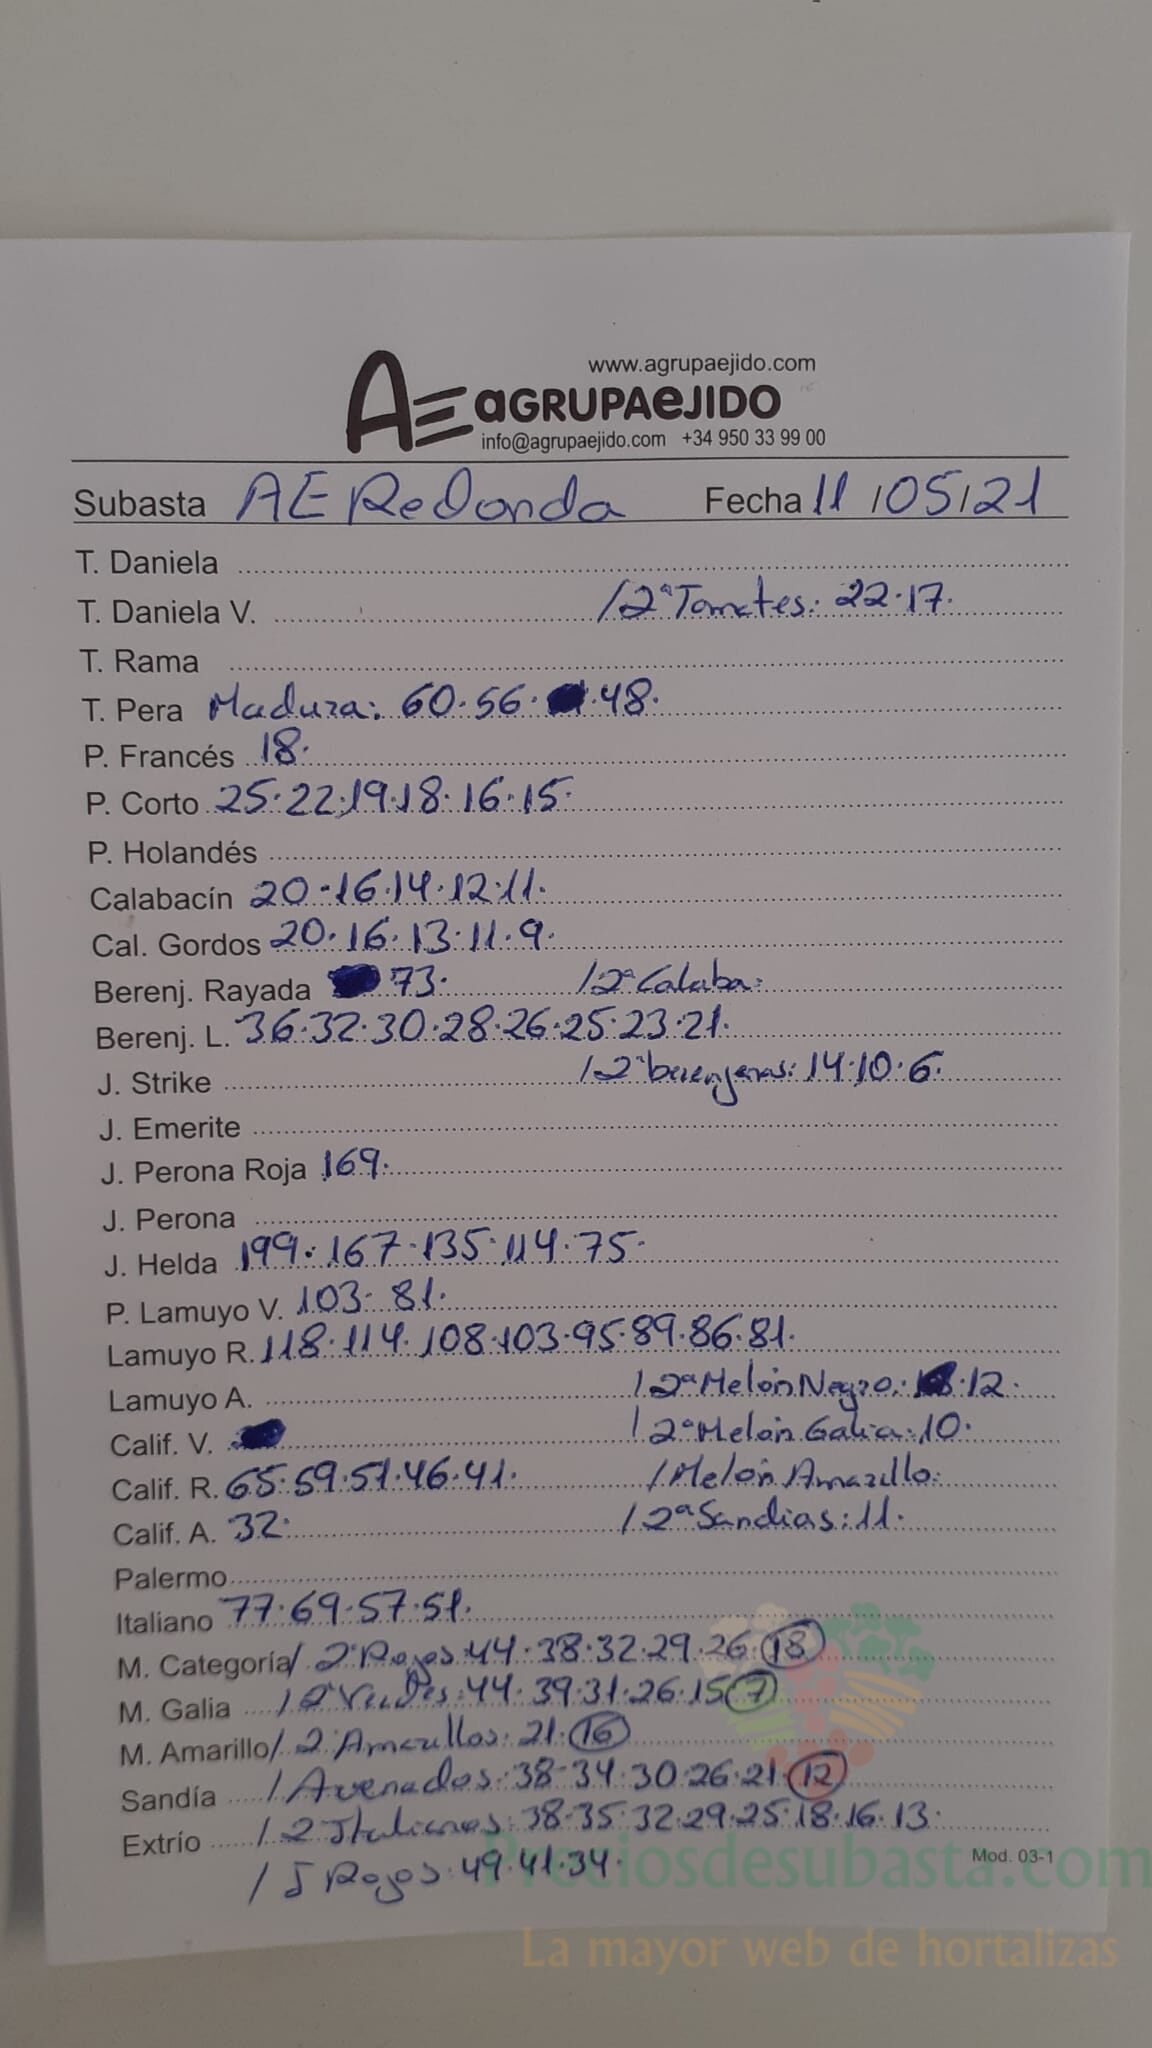 www.agrupaejido.com
AE aGRUPAeJIDO
info@agrupaejido.com +34 950 33 99 00
Subasta AE Redonda Fecha 11/05/21
T. Daniela
T. Daniela V. /2ª Tomates: 22.17.
T. Rama
T. Pera Madura: 60.56. .48.
P. Francés 18.
P. Corto 25.22.19.18.16.15.
P. Holandés
Calabacín 20.16.14.12.11.
Cal. Gordos 20.16.13.11.9.
Berenj. Rayada 73. /2ª Calaba:
Berenj. L. 36.32.30.28.26.25.23.21.
J. Strike /2ª berenjenas: 14.10.6.
J. Emerite
J. Perona Roja 169.
J. Perona
J. Helda 199.167.135.114.75.
P. Lamuyo V. 103.81.
Lamuyo R. 118.114.108.103.95.89.86.81.
Lamuyo A. /2ª Melón Negro: .12.
Calif. V. /2ª Melón Galia: 10.
Calif. R. 65.59.51.46.41. /Melón Amarillo:
Calif. A. 32. /2ª Sandias: 11.
Palermo
Italiano 77.69.57.51.
M. Categoría /2ª Rojos: 44.38.32.29.26.18
M. Galia /2ª Verdes: 44.39.31.26.15 7
M. Amarillo /2. Amarillos: 21.16
Sandía /Avenados: 38.34.30.26.21.12
Extrío /2 Italianos: 38.35.32.29.25.18.16.13.
/J Rojos: 49.41.34.
Mod. 03-1
Preciosdesubasta.com
La mayor web de hortalizas